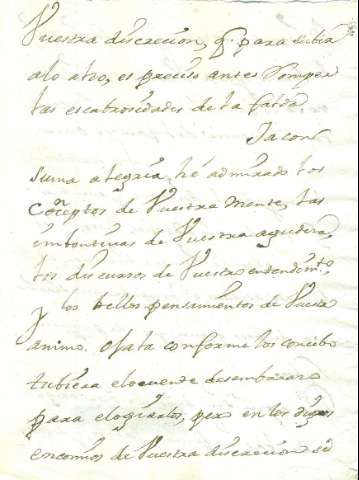 Vuestra discrecion, q. para subir
alo alto, es preciso antes romper
las escabrosidades de la falda.
Ja con
suma alegria, hé admirado los
Conceptos de Vuestra mente, las
de Vuestra agudeza,
los discursos de Vuestro entendimto,
y los bellos pensamientos de Vuestro
animo. Ojala conforme los concibo
tubiera eloquente desembarazo
para elogiarlos, pero en los
de Vuestra discrecion se